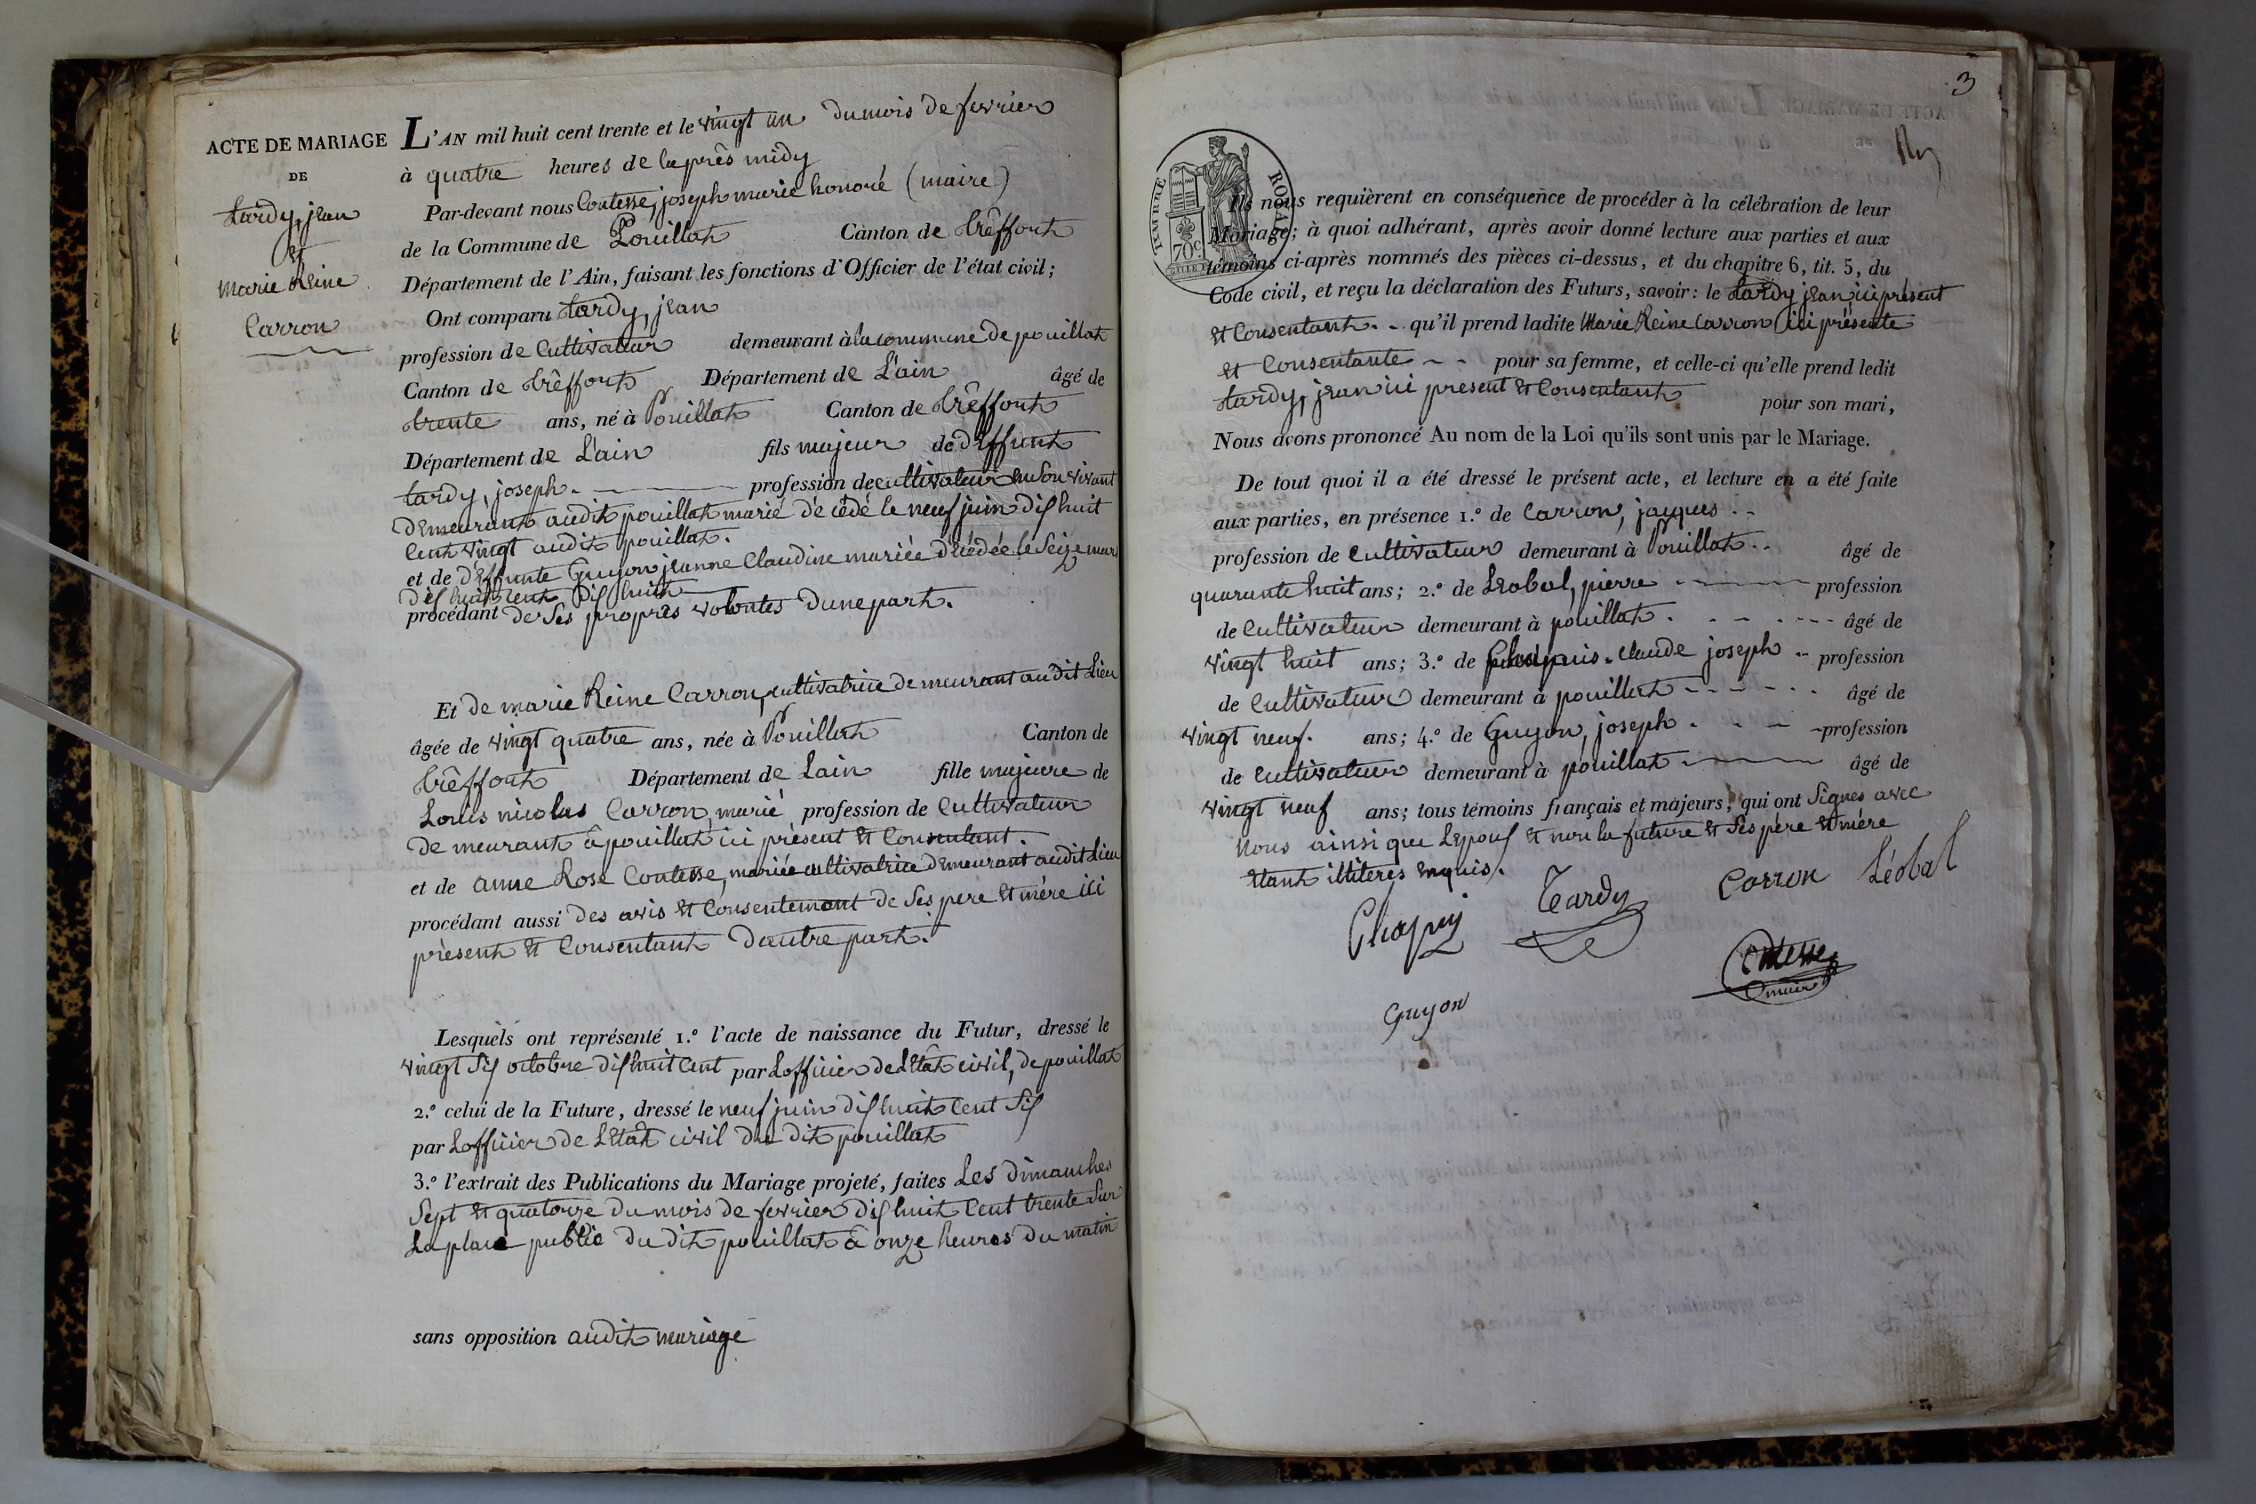 ACTE DE MARIAGE
DE
tardy, jean
et
marie Reine
Carron
L'AN mil huit cent trente et le vingt un du mois de fevrier
à quatre heures de laprês midy
Par-devant nous Contesse, joseph marie honoré (maire)
de la Commune de Pouillat Canton de trêffort
Département de l'Ain, faisant les fonctions d'Officier de l'état civil;
Ont comparu tardy, jean
profession de Cultivateur demeurant à la commune de pouillat
Canton de trêffort Département de L'ain âgé de
trente ans, né à Pouillat Canton de trêffort
Département de L'ain fils majeur de deffunt
tardy, joseph. profession de cultivateur en son vivant
demeurant audit pouillat marié décédé le neuf juin dishuit
Cent vingt audit pouillat.
et de deffunte Guyon jeanne Claudine mariée décédée le Seize mars
dishuit cent dishuit
procédant de Ses propres volontes dune part.
Et de marie Reine Carron, cultivatrice demeurant audit Lieu
âgée de vingt quatre ans, née à Pouillat Canton de
trêffort Département de Lain fille majeure de
Louis nicolas Carron, marié, profession de Cultivateur
demeurant â pouillat ici present et Consentant.
et de anne Rose Contesse, mariée cultivatrice demeurant audit Lieu
procédant aussi des avis et Consentement de Ses pere et mére ici
présent et Consentant dautre part.
Lesquels ont représenté 1.° l'acte de naissance du Futur, dressé le
vingt Sis octobre dishuit Cent par Lofficier de Létât civil, de pouillat
2.° celui de la Future, dressé le neuf juin dishuit Cent Sis
par Lofficier de Létât civil du dit pouillat
3.° l'extrait des Publications du Mariage projeté, faites Les dimanches
Sept et quatorze du mois de fevrier dishuit Cent trente Sur
La place public du dit pouillat â onze heures du matin
sans opposition audit mariage
3
TIMBRE ROYAL
70 c.
Ils nous requièrent en conséquence de procéder à la célébration de leur
Mariage; à quoi adhérant, après avoir donné lecture aux parties et aux
témoins ci-après nommés des pièces ci-dessus, et du chapitre 6, tit. 5, du
Code civil, et reçu la déclaration des Futurs, savoir: le tardy jean ici présent
et Consentant. - qu'il prend ladite Marie Reine Carron ici présente
et Consentante - - pour sa femme, et celle-ci qu'elle prend ledit
tardy, jean ici present et Consentant pour son mari,
Nous avons prononcé Au nom de la Loi qu'ils sont unis par le Mariage.
De tout quoi il a été dressé le présent acte, et lecture en a été faite
aux parties, en présence 1.° de Carron, jacques
profession de Cultivateur demeurant à Pouillat âgé de
quarante huit ans; 2.° de Léobal, pierre profession
de Cultivateur demeurant à pouillat. âgé de
vingt huit ans; 3.° de Chapuis. Claude joseph profession
de Cultivateur demeurant à pouillat âgé de
vingt neuf. ans; 4.° de Guyon, joseph profession
de Cultivateur demeurant à pouillat âgé de
vingt neuf ans; tous témoins français et majeurs, qui ont Signes avec
Nous ainsi que Lépous et non la future et Ses père et mère
étant illiteres enquis.
Chapuy Tardy Carron Léobal
Contesse
maire
Guyon